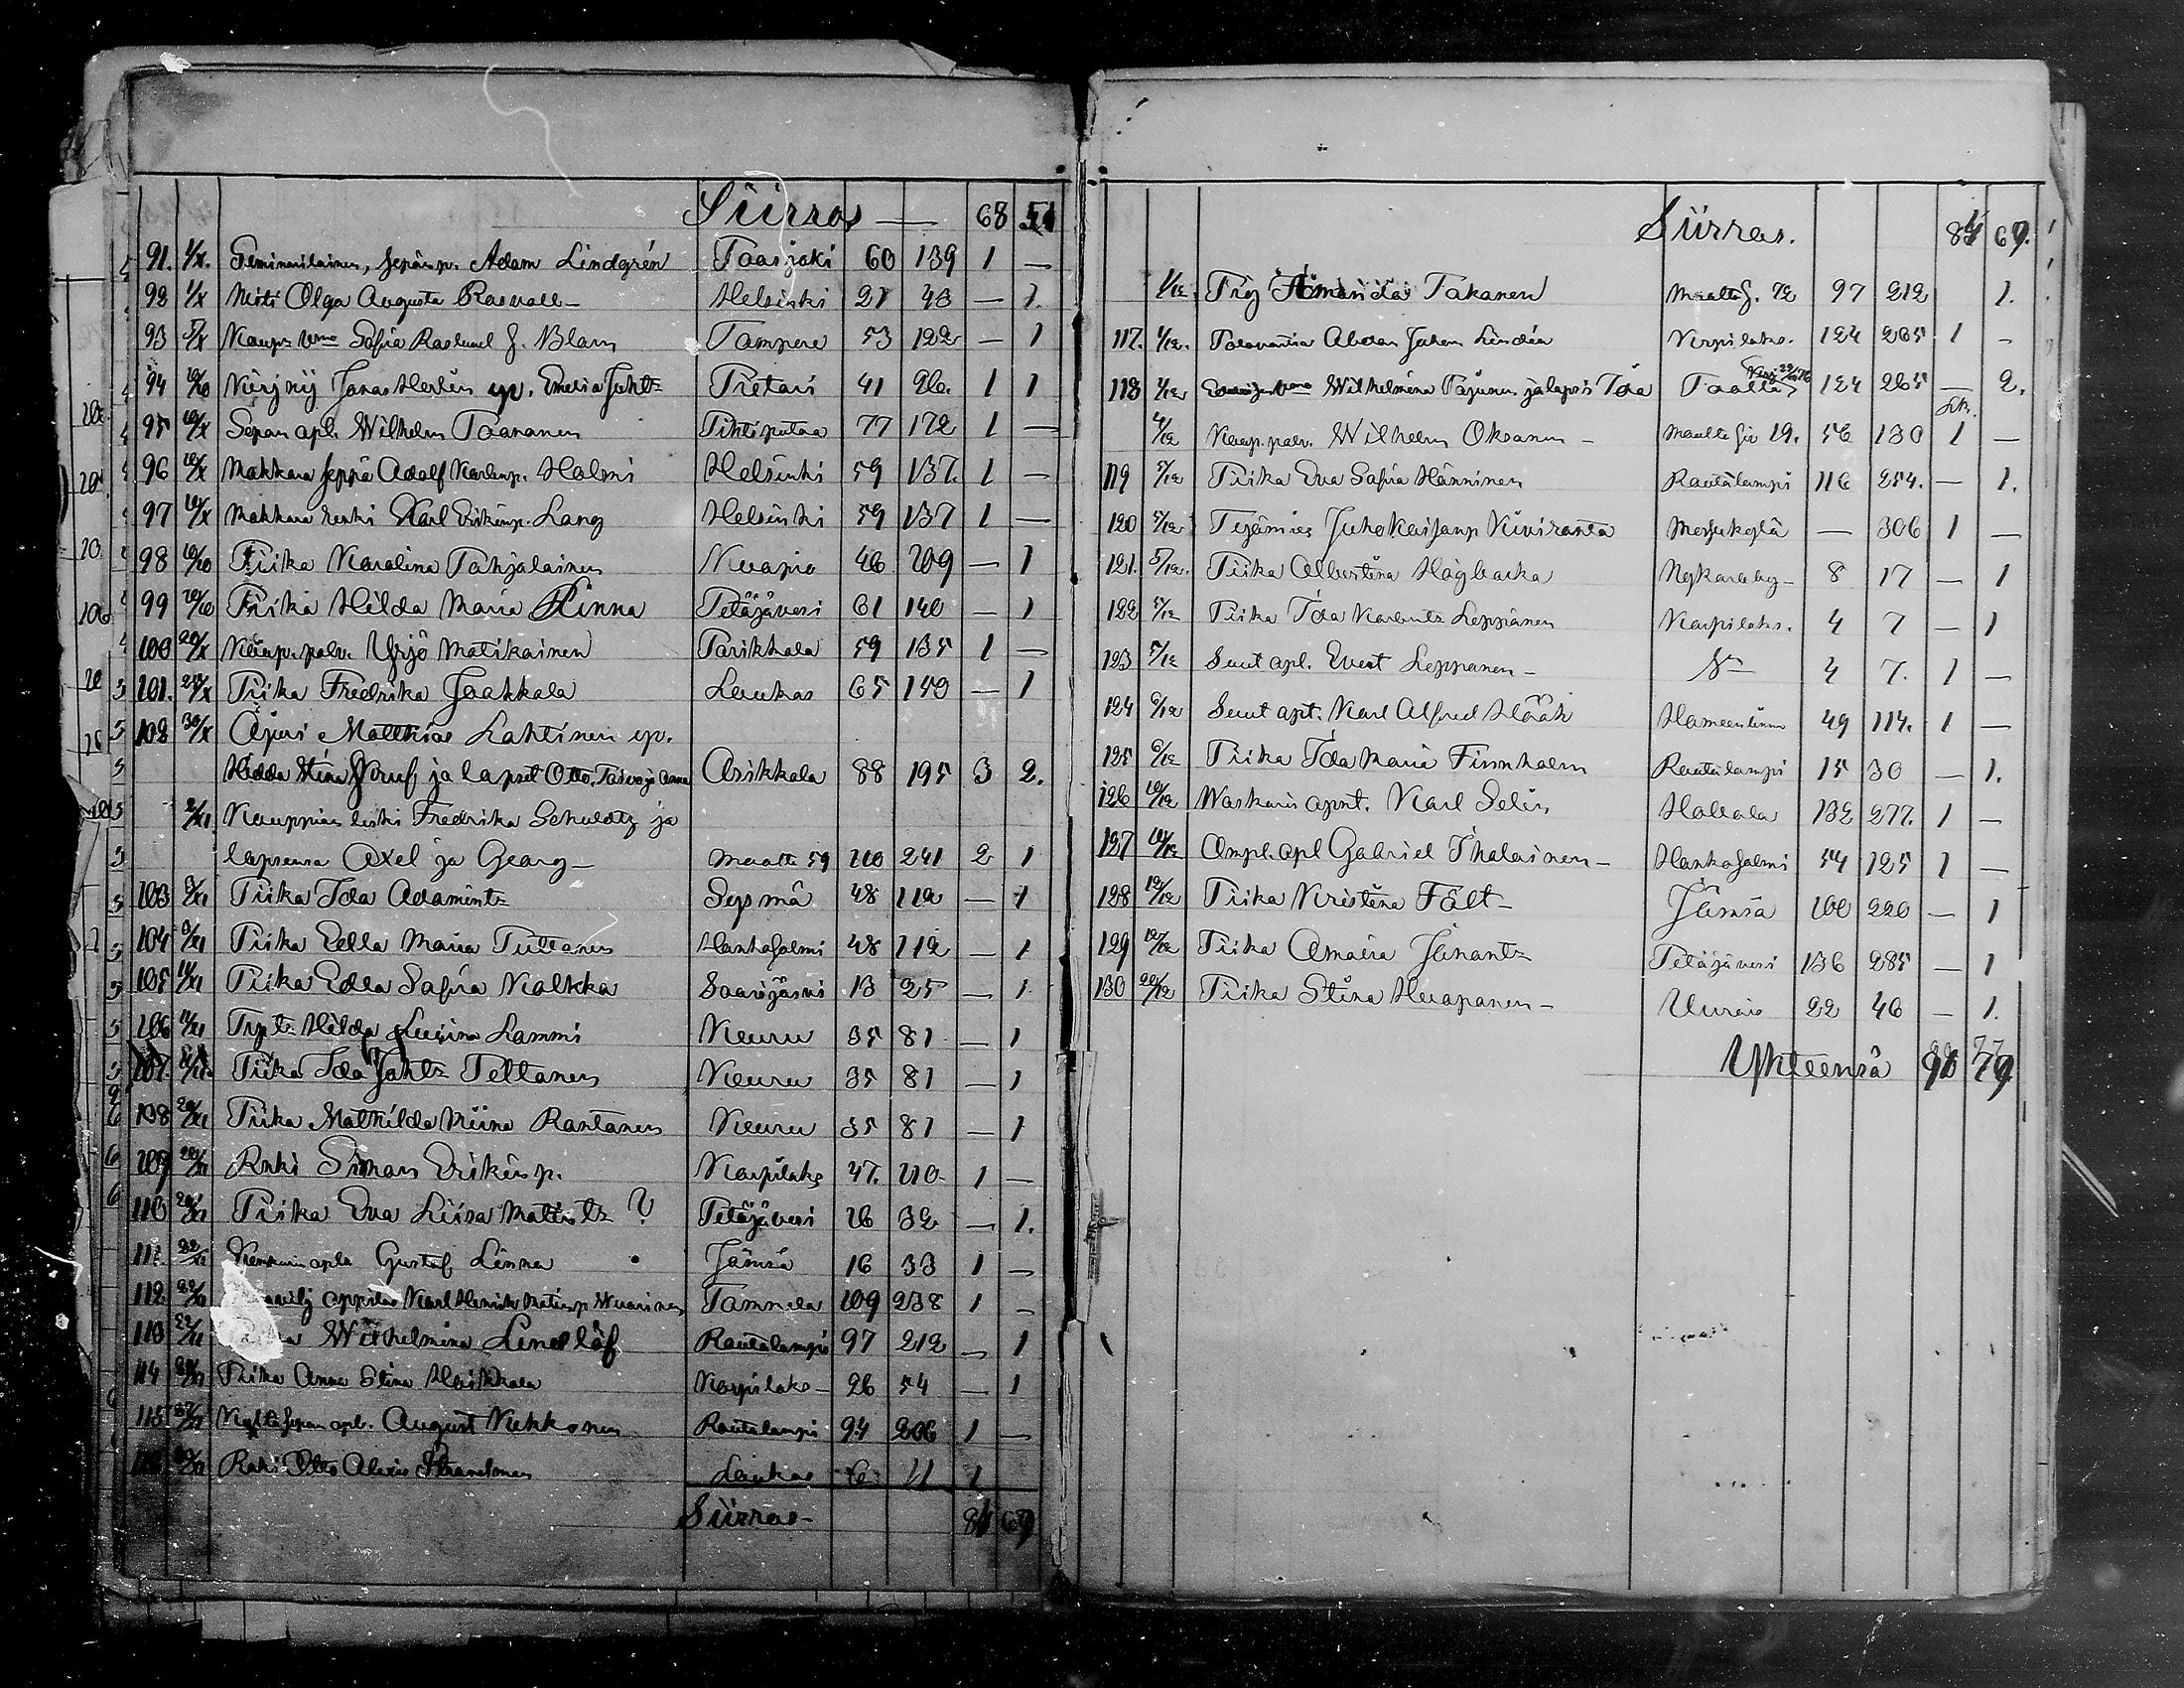 Siirros — 68 51
91. 1/X. Seminarilainen, sepänp. Adam Lindgrén Taasjaki 60 139 1 —
92 1/X Neiti Olga Augusta Rasvall — Helsinki 21 43 — 1.
93 5/X Kaup: Sofia Raslund f. Blom Tampere 53 122 — 1
94 10/10 Kirj Jonas Herlin vp. Emelia Juhtr Pietari 41 26. 1 1
95 10/X Sepän apl. Wilhelm Paananen Pihtiputaa 77 172 1 —
96 10/X Makkara seppä Adolf Karlinp. Holmi Helsinki 59 137. 1 —
97 10/X Makkara renki Karl Erikinp. Lang Helsinki 59 137 1 —
98 10/10 Piika Karolina Pohjalainen Kuopio 46 109 — 1
99 20/10 Piika Hilda Maria Rinna Petäjävesi 61 140 — 1
100 20/X Kaup. palv. Yrjö Matikainen Parikkala 59 135 1 —
101. 25/X Piika Fredrika Jaakkala Laukas 65 159 — 1
102 30/X Ajuri Matthias Lahtinen vp.
Hedda Stina ja lapset Otto, Taavo ja Anna Asikkala 88 195 3 2.
2/XI Kauppias leski Fredrika Schuldtz ja
lapsensa Axel ja Georg — Maalta 59 110 241 2 1
103 8/XI Piika Ida Adamintr Sysmä 48 112 — 1
104 9/XI Piika Edla Maria Tuttanen Hankasalmi 48 112 — 1
105 11/XI Piika Edla Sofia Kalkka Saarijärvi 13 25 — 1
106 11/XI Tyttr Hilda Lusina Lammi Keuru 35 81 — 1
107. Piika Ida Johtr Teltanen Keuru 35 81 — 1
108 20/XI Piika Mathilda Miina Rantanen Keuru 35 81 — 1
109 20/XI Renki Simon Erikinp. Korpilaks 47. 110 1 —
110 20/XI Piika Eva Liisa Matintr ? Petäjävesi 16 32 — 1.
111. 22/XI apla Gustaf Linna Jämsä 16 33 1 —
112 22/11 oppilas Karl Henrik Matinp Tammela 109 238 1 —
113 22/11 Wilhelmina Lindlöf Rautalampi 97 212 — 1
114 Piika Anna Stina Haikkala Korpilaks — 26 54 — 1
115 27/XI Kultasepän apl. August Kukkonen Rautalampi 94 206 1 —
Renki Otto Alexis Strandman Laukas 6 11 1
Siirros — 84 69
Siirros. 84 69.
1/12 Amanda Takanen Maalta s. 72 97 212 1.
117. 1/12. Abdon Juhan Lindén Korpilaks. 124 265 1 —
118 1/12 Wilhelmina Pajunen ja lapsi Ida Täältä 124 265 — 2.
4/12 Kaup. palv. Wilhelm Oksanen — Maalta siv 19. 56 130 1 —
119 5/12 Piika Eva Sofia Hänninen Rautalampi 116 254. — 1.
120 5/12 Työmies Juho Kaisanp Kiviranta Messukylä — 306 1 —
121. 5/12. Piika Albertina Högbacka Nykarleby — 8 17 — 1
122 5/12 Piika Ida Karlintr Leppänen Korpilaks. 4 7 — 1
123 5/12 Suut apl. Evert Leppanen — 4 7. 1 —
124 6/12 Suut apt. Karl Alfred Höök Hameenlinna 49 114. 1 —
125 6/12 Piika Ida Maria Finnholm Rautalampi 15 30 — 1.
126 10/12 Waskarin apt. Karl Selin Hollola 132 277. 1 —
127 10/12 Ompl. apl Gabriel Ihalainen — Hankasalmi 54 125 1 —
128 12/12 Piika Kristina Fält — Jämsä 100 220 — 1
129 12/12 Piika Amalia Jänantr Petäjävesi 136 285 — 1
130 20/12 Piika Stina Huapanen — Uurais 22 46 — 1.
Yhteensä